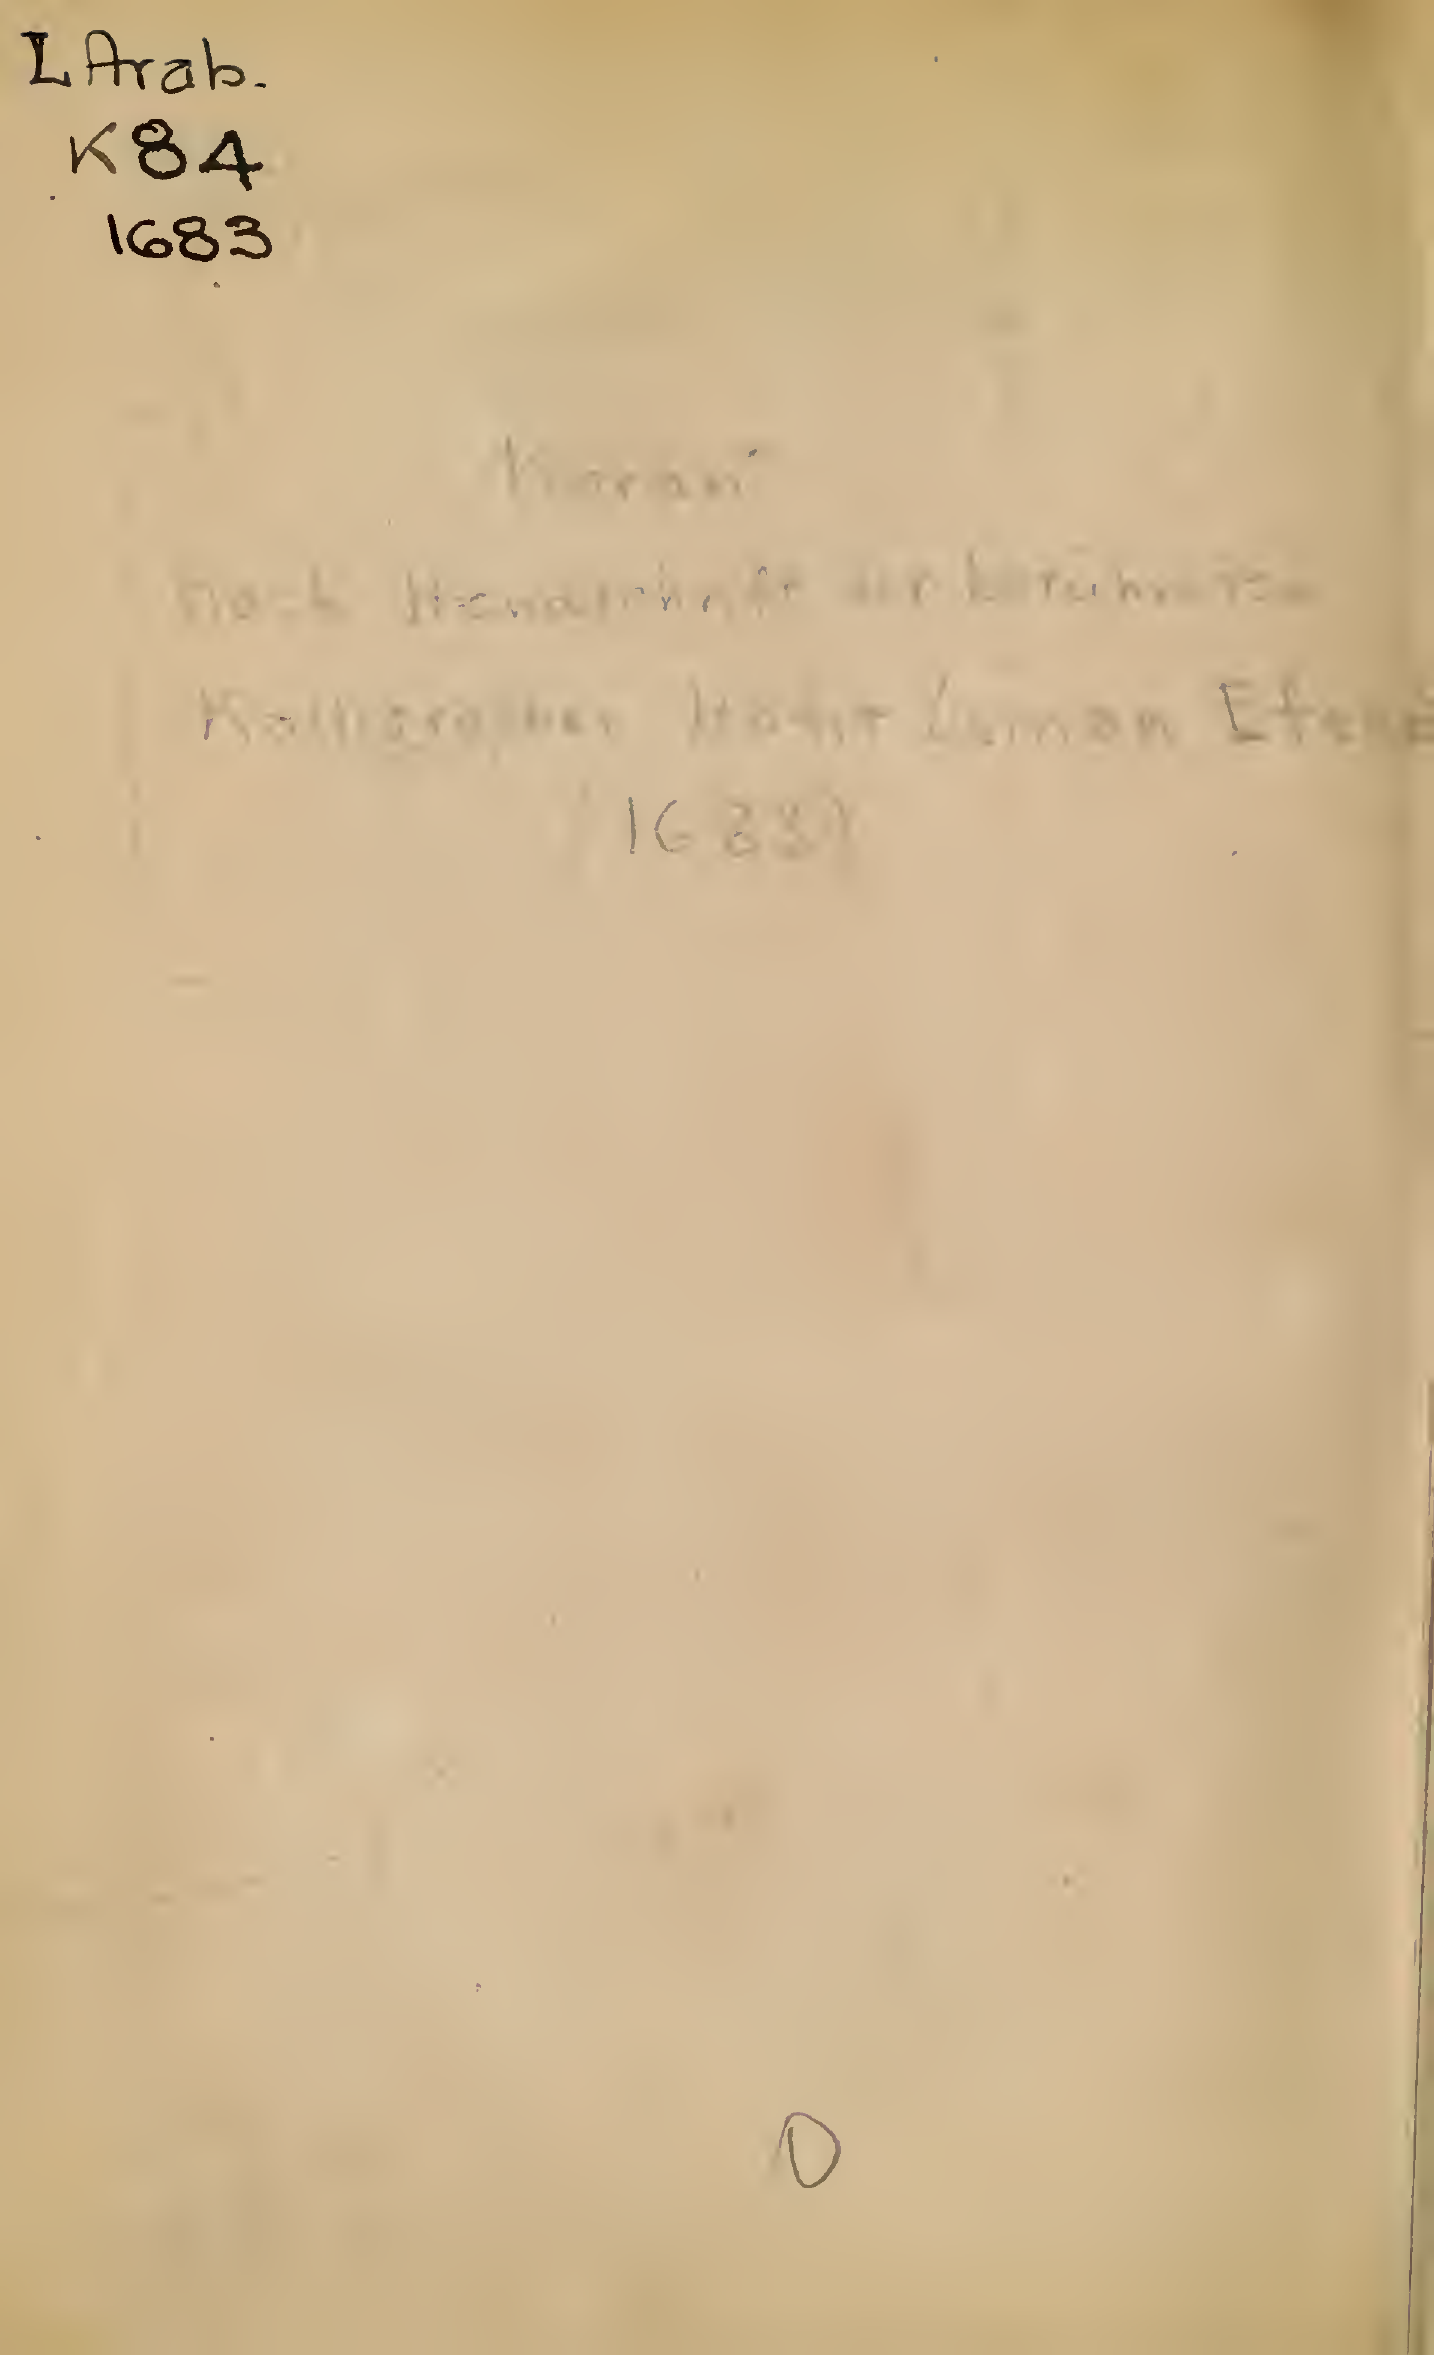 LArab.
K84
1683
Koran
nach Handschrift der berühmten
Kalligraphen Hafir Euman Efend
(1683)
D